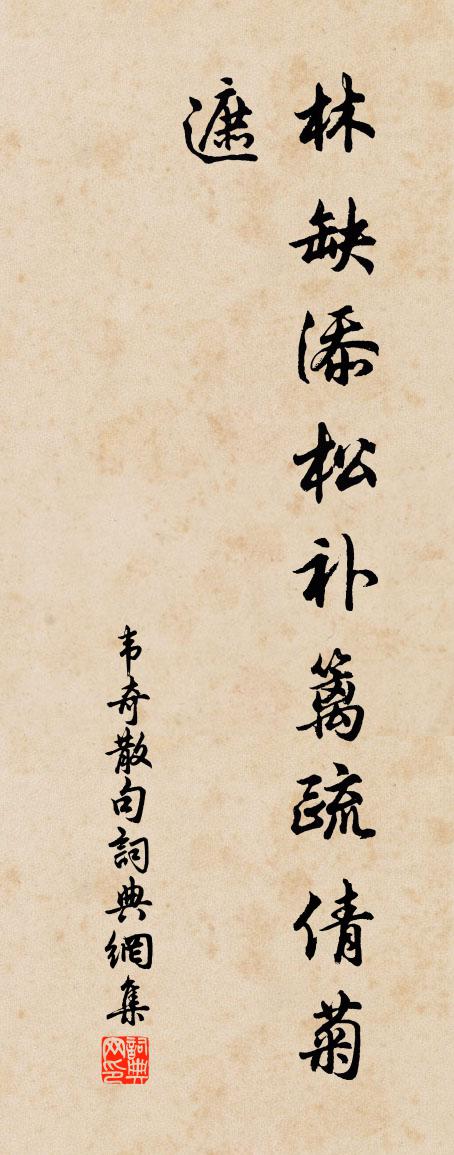 林缺添松补篱疏倩菊
遮
韦奇散句詞典網集
詞典
网印